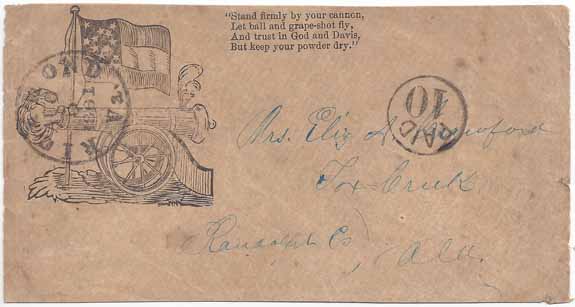 "Stand firmly by your cannon,
Let ball and grape-shot fly,
And trust in God and Davis,
But keep your powder dry."
RICHMOND VA.
PAID
10
Mrs. Eliz A. Crawford
Fox Creek
Randolph Co
Ala.